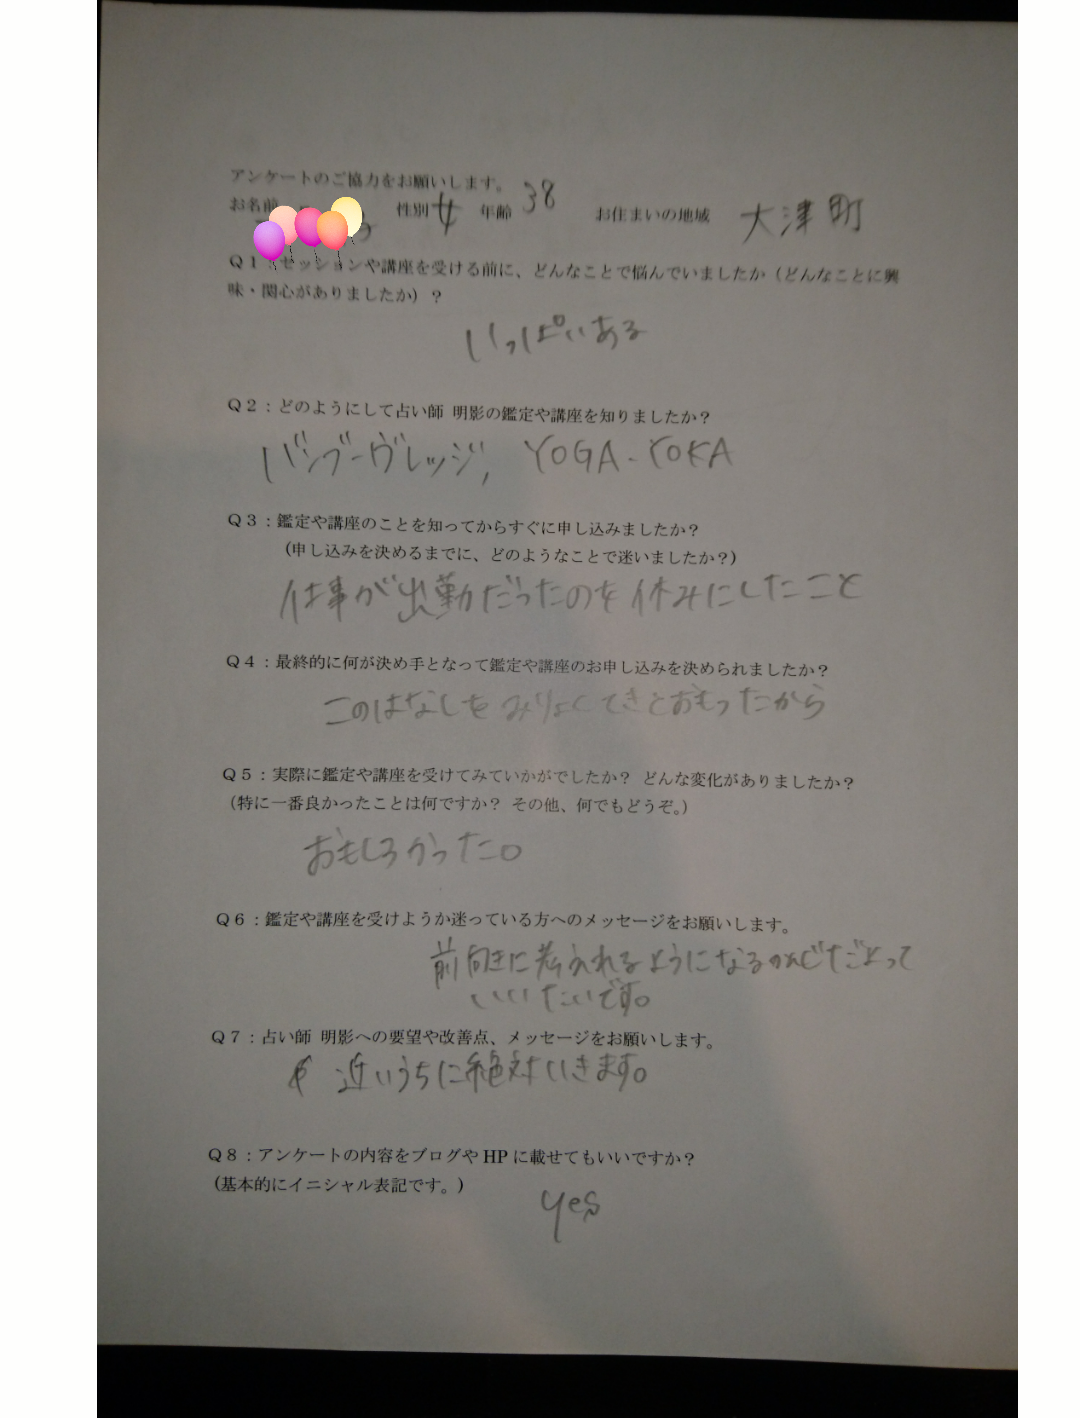 アンケートのご協力をお願いします。
お名前 性別 女 年齢 38 お住まいの地域 大津町
Q1：セッションや講座を受ける前に、どんなことで悩んでいましたか（どんなことに興
味・関心がありましたか）？
いっぱいある
Q2：どのようにして占い師 明影の鑑定や講座を知りましたか？
バンブーヴレッジ, YOGA-YOKA
Q3：鑑定や講座のことを知ってからすぐに申し込みましたか？
（申し込みを決めるまでに、どのようなことで迷いましたか？）
仕事が出勤だったのを休みにしたこと
Q4：最終的に何が決め手となって鑑定や講座のお申し込みを決められましたか？
このはなしをみりょくてきとおもったから
Q5：実際に鑑定や講座を受けてみていかがでしたか？ どんな変化がありましたか？
（特に一番良かったことは何ですか？ その他、何でもどうぞ。）
おもしろかった。
Q6：鑑定や講座を受けようか迷っている方へのメッセージをお願いします。
前向きに考えれるようになるかんじだよって
いいたいです。
Q7：占い師 明影への要望や改善点、メッセージをお願いします。
近いうちに絶対いきます。
Q8：アンケートの内容をブログやHPに載せてもいいですか？
（基本的にイニシャル表記です。）
yes